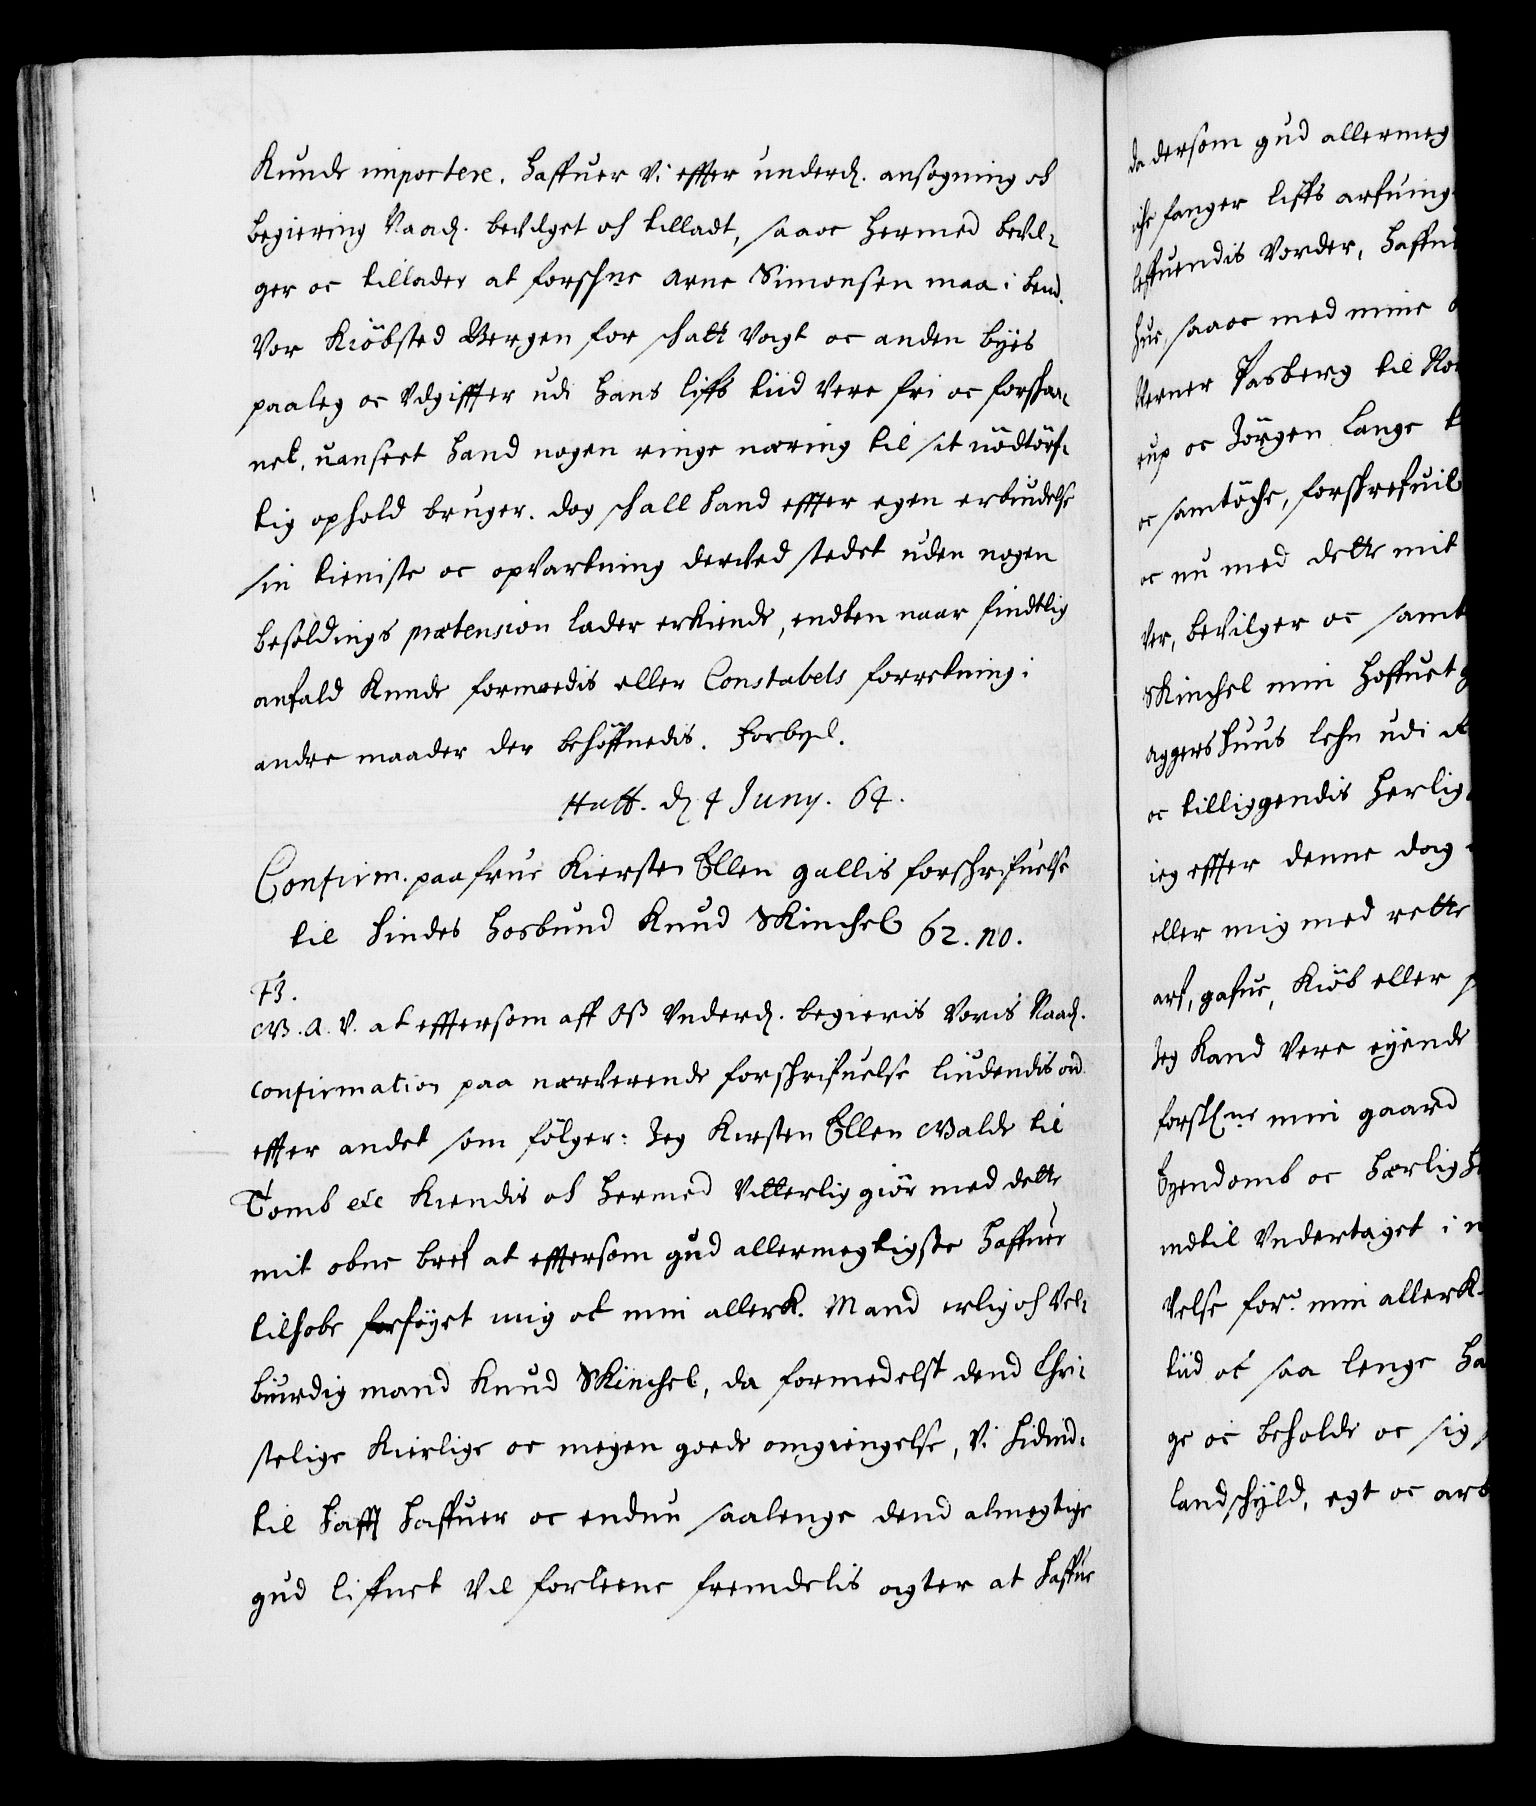 Kunde importere. Haffuer vi effter underd. ansøgning och
begiering Naad. bevilget och tilladt, saa oc hermed bevil-
ger oc tillader at forschne Arne Simonsen maa i bem.
Vor Kiöbsted Bergen for schatt Vagt oc anden byës
paaleg oc Udgiffter udi hans liffs tiid Vere fri oc forschaa-
net, uanseet hand nogen ringe næring til sit nödtörf-
tig ophold bruger. dog schall hand effter egen erbiudelse
sin tieniste oc opvartning derved stedet uden nogen
besoldings prætension lader erkiende, endten naar findtlig
anfald Kunde formoedis eller Constabels forretning i
andre maader der behöffuedis. Forbyd.
Haff. d 4 Juny. 64.
Confirm. paa frue Kiersten Ellen Gallis forschrifuelse
til hindes hosbund Knud Skinchel 62. no.
F3.
G. A. V. at efftersom aff Oss Underd. begieris Voris Naad.
confirmation paa nærverende forschrifuelse liudendis ord
effter andet som fölger: Jeg Kirsten Ellen Galde til
Tomb etc Kiendis och hermed Vitterlig giör med dette
mit obne bref at efftersom gud allermegtigste haffuer
tilhobe föyet mig oc min allerk. Mand erlig och Vel-
biurdig mand Knud Skinchel, da formedelst dend Chri-
stelige Kierlige oc megen goede omgiengelse, Vi hidind-
til hafft haffuer oc endnu saalenge dend almegtige
gud liffuet Vil forleene fremdelis agter at haffue
da dersom gud allermeg
iche fanger liffs arfuing
leffuendis Vorder, haffu
hue, saa oc med mine
Verner Pasberg til
rup oc Jörgen Lange
oc samtöche, forschrefuil
oc nu med dette mit
Ver, bevilger oc samt
Skinchel min hoffuet
Aggershuus lehn udi
oc tilliggendis herlig
ieg effter denne dag
eller mig med rette
arf, gafue, Kiöb eller
Jeg Kand Vere eyende
forschne min gaard
Eyendomb oc herlighe
indtil Undertaget i
velse for min allerk.
tiid oc saa lenge ha
ge oc beholde oc sig
landschyld, egt oc arb